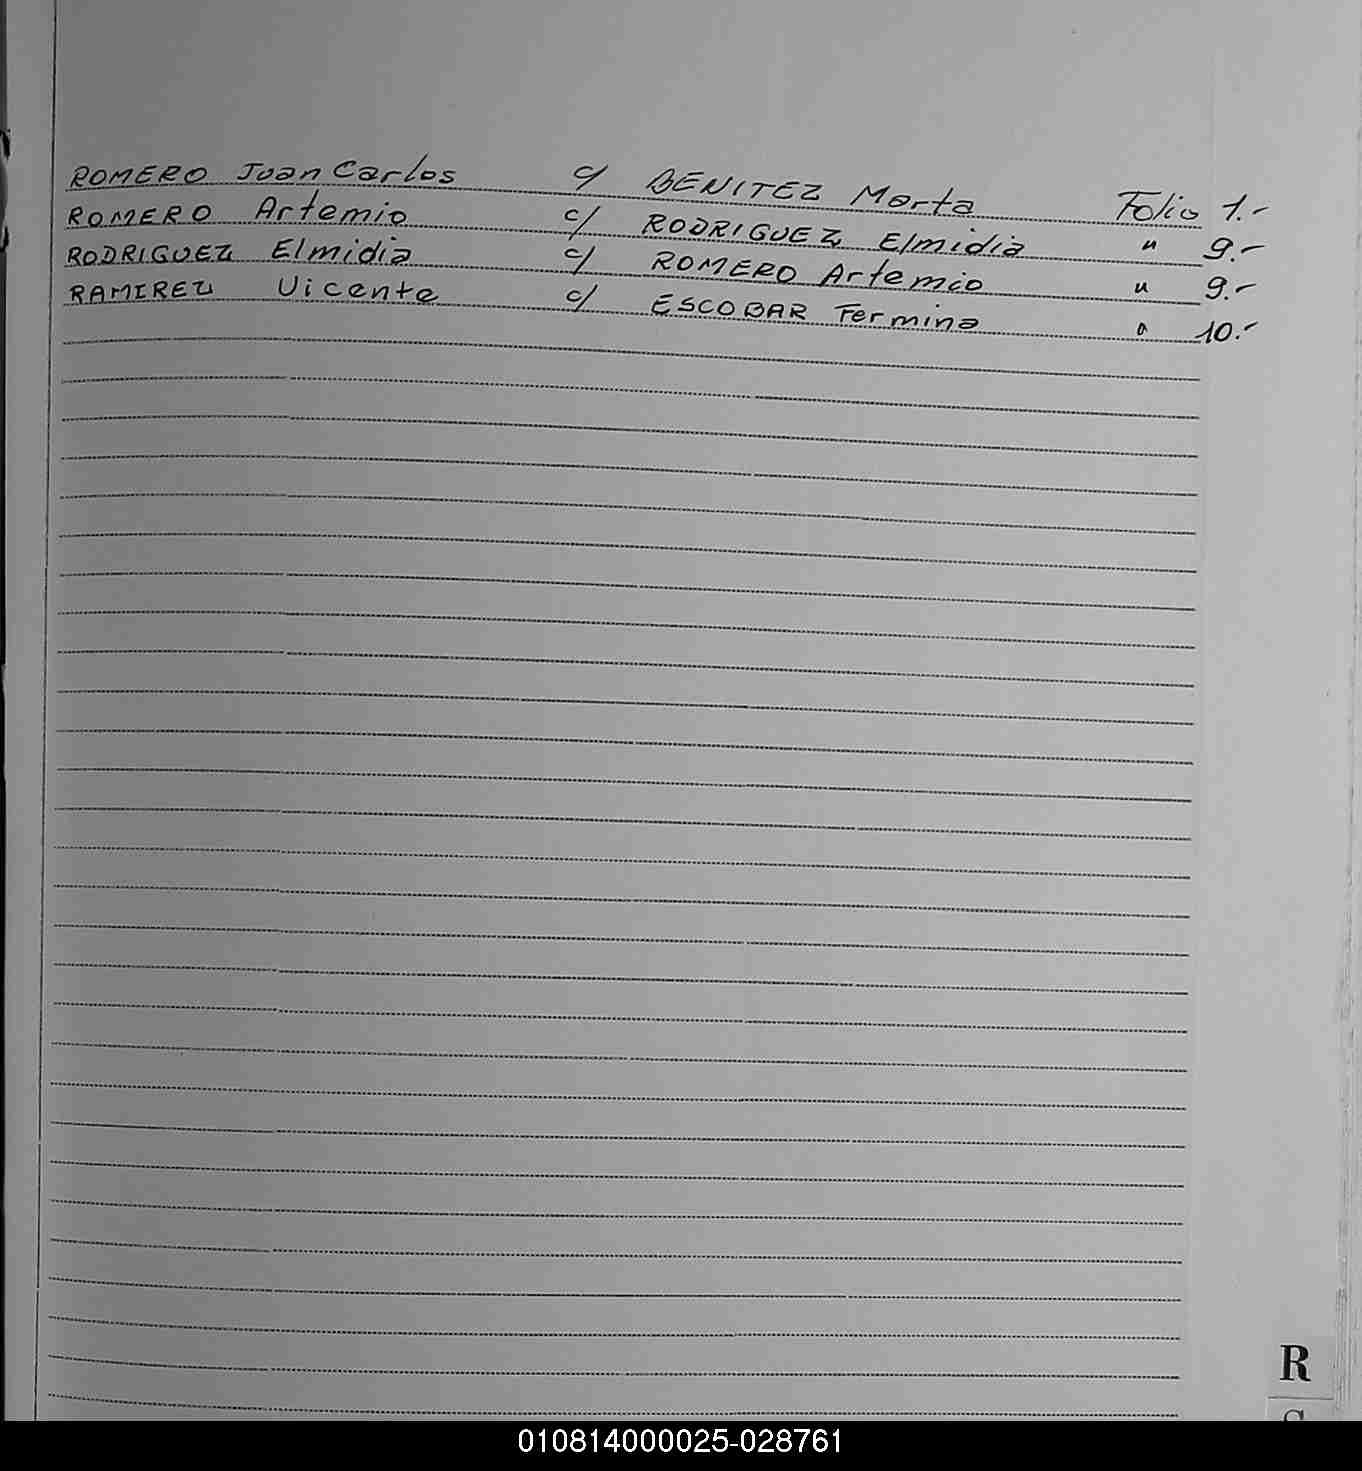 ROMERO Juan Carlos c/ BENITEZ Marta Folio 1.-
ROMERO Artemio c/ RODRIGUEZ Elmidia " 9.-
RODRIGUEZ Elmidia c/ ROMERO Artemio " 9.-
RAMIREZ Vicente c/ ESCOBAR Fermina " 10.-
R
010814000025-028761